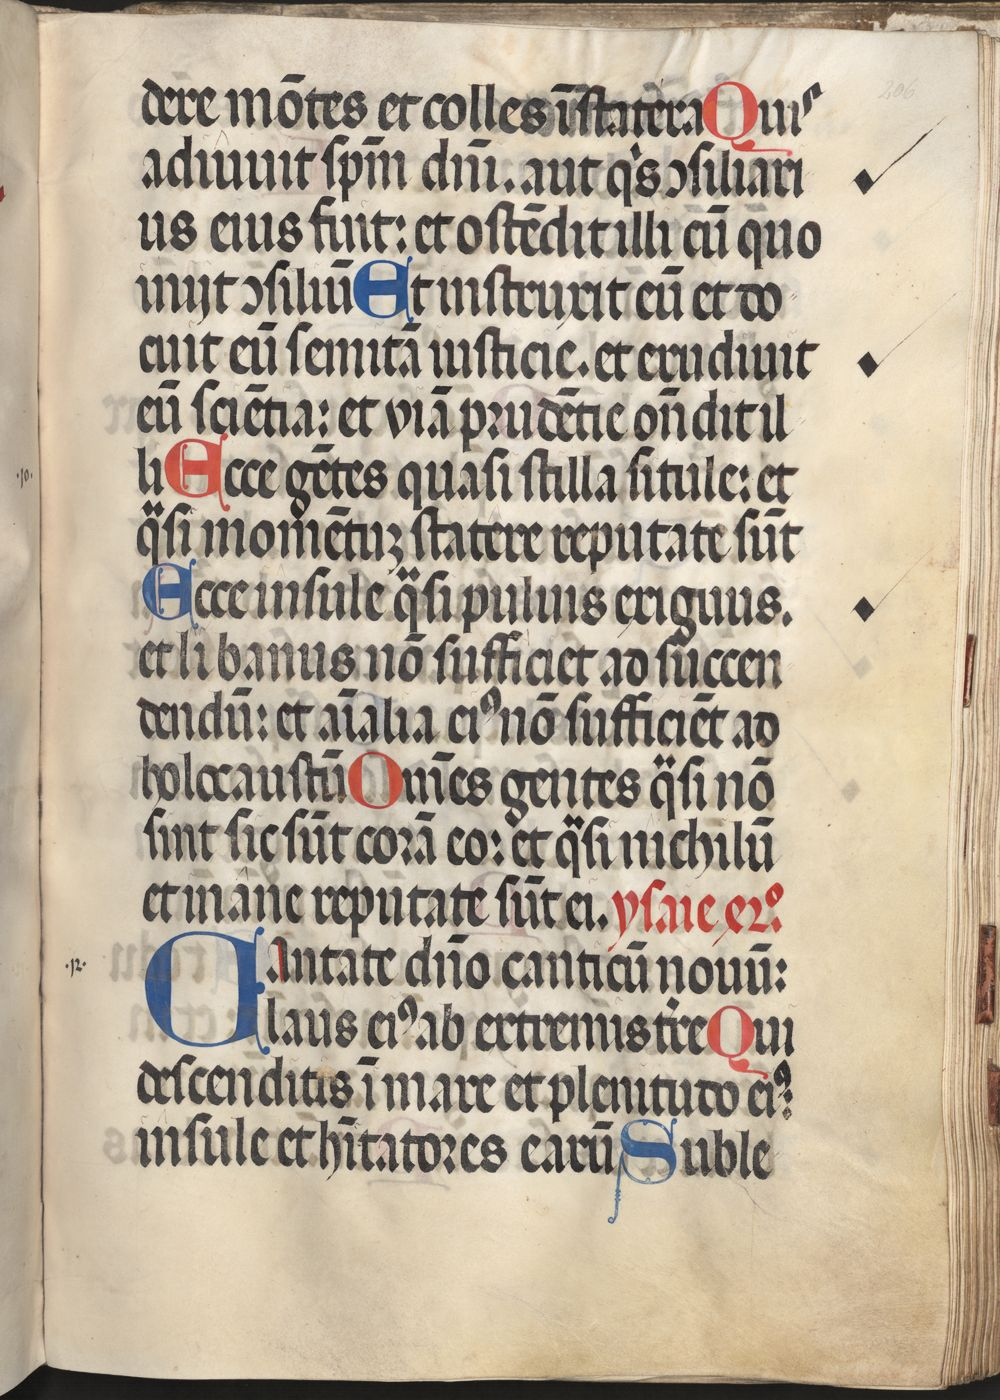 206
dere mōtes et colles ī statera Quis
adiuuit sp̄m dn̄i. aut q's ↄsiliari
us eius fuit: et ostēdit illi cū quo
inijt ↄsiliū Et instruxit eū et do
cuit eū semitā iusticie. et erudiuit
eū sciētia: et viā prudētie on̄dit il
li Ecce gētes quasi stilla situle: et
·10·
qͣsi momētuꝫ statere reputate sūt
Ecce insule qͣsi puluis exiguus.
et libanus nō sufficiet ad succen
dendū: et aīalia eiꝰ nō sufficiēt ad
holocaustū Omēs gentes qͣsi nō
sint sic sūt corā eo: et qͣsi nichilū
et inane reputate sūt ei. ysaie
·12· Cantate dn̄o canticū nouū:
laus eiꝰ ab extremis tr̄e Qui
descenditis ī mare et plenitudo eiꝰ:
insule et hītatores earū Suble